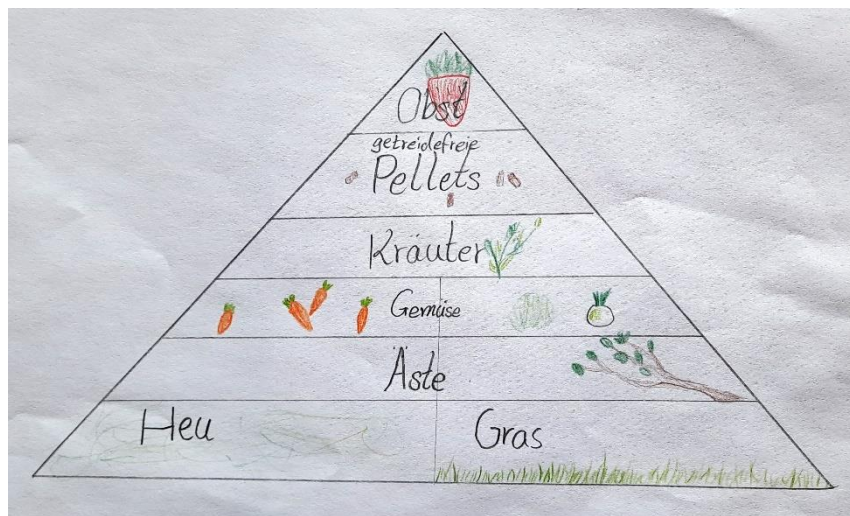 Obst
getreidefreie
Pellets
Kräuter
Gemüse
Äste
Heu
Gras